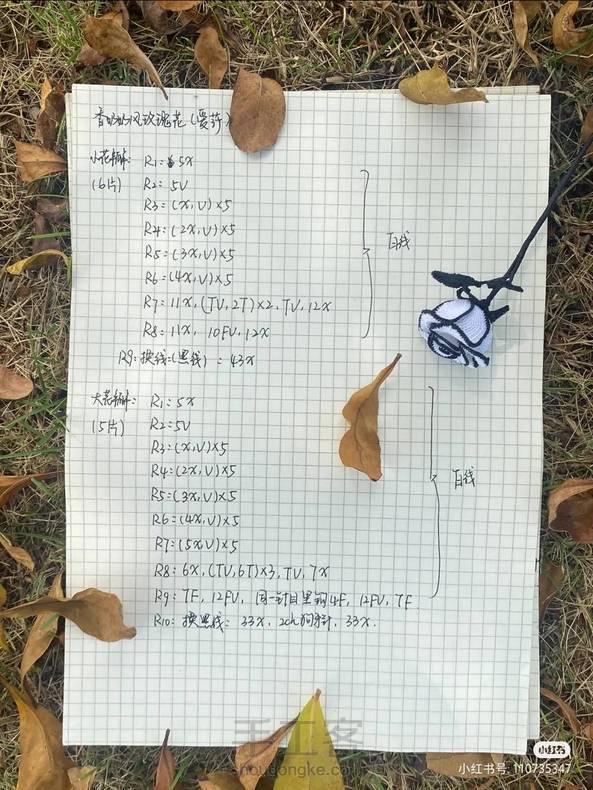 香奶奶风玫瑰花(爱莎)
小花瓣: R1: 5X
(6片) R2: 5V
R3: (X,V)×5
R4: (2X,V)×5
R5: (3X,V)×5
R6: (4X,V)×5
白线
R7: 11X,(TV,2T)×2,TV,12X
R8: 11X, 10FV, 12X
R9: 换线(黑线): 43X
大花瓣: R1: 5X
(5片) R2: 5V
R3: (X,V)×5
R4: (2X,V)×5
R5: (3X,V)×5
白线
R6: (4X,V)×5
R7: (5X,V)×5
R8: 6X,(TV,6T)×3,TV,7X
R9: 7F, 12FV, 同一针目里钩4F, 12FV, 7F
R10: 换黑线: 33X, 2ch狗牙针, 33X.
手工客
shougongke.com
小红书
小红书号: 110735347